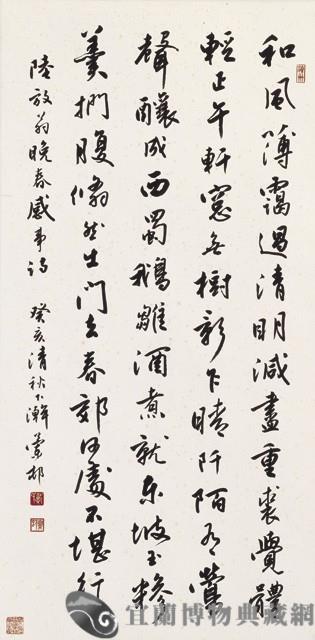 和風薄靄過清明減盡重裘覺體
輕正午軒窓無樹影乍晴阡陌有鶯
聲釀成西蜀鵝雛酒煮就東坡玉糝
羹捫腹翛然出門去春郊何處不堪行
陸放翁晚春感事詩 癸亥清秋下澣 邨
宜蘭博物典藏網